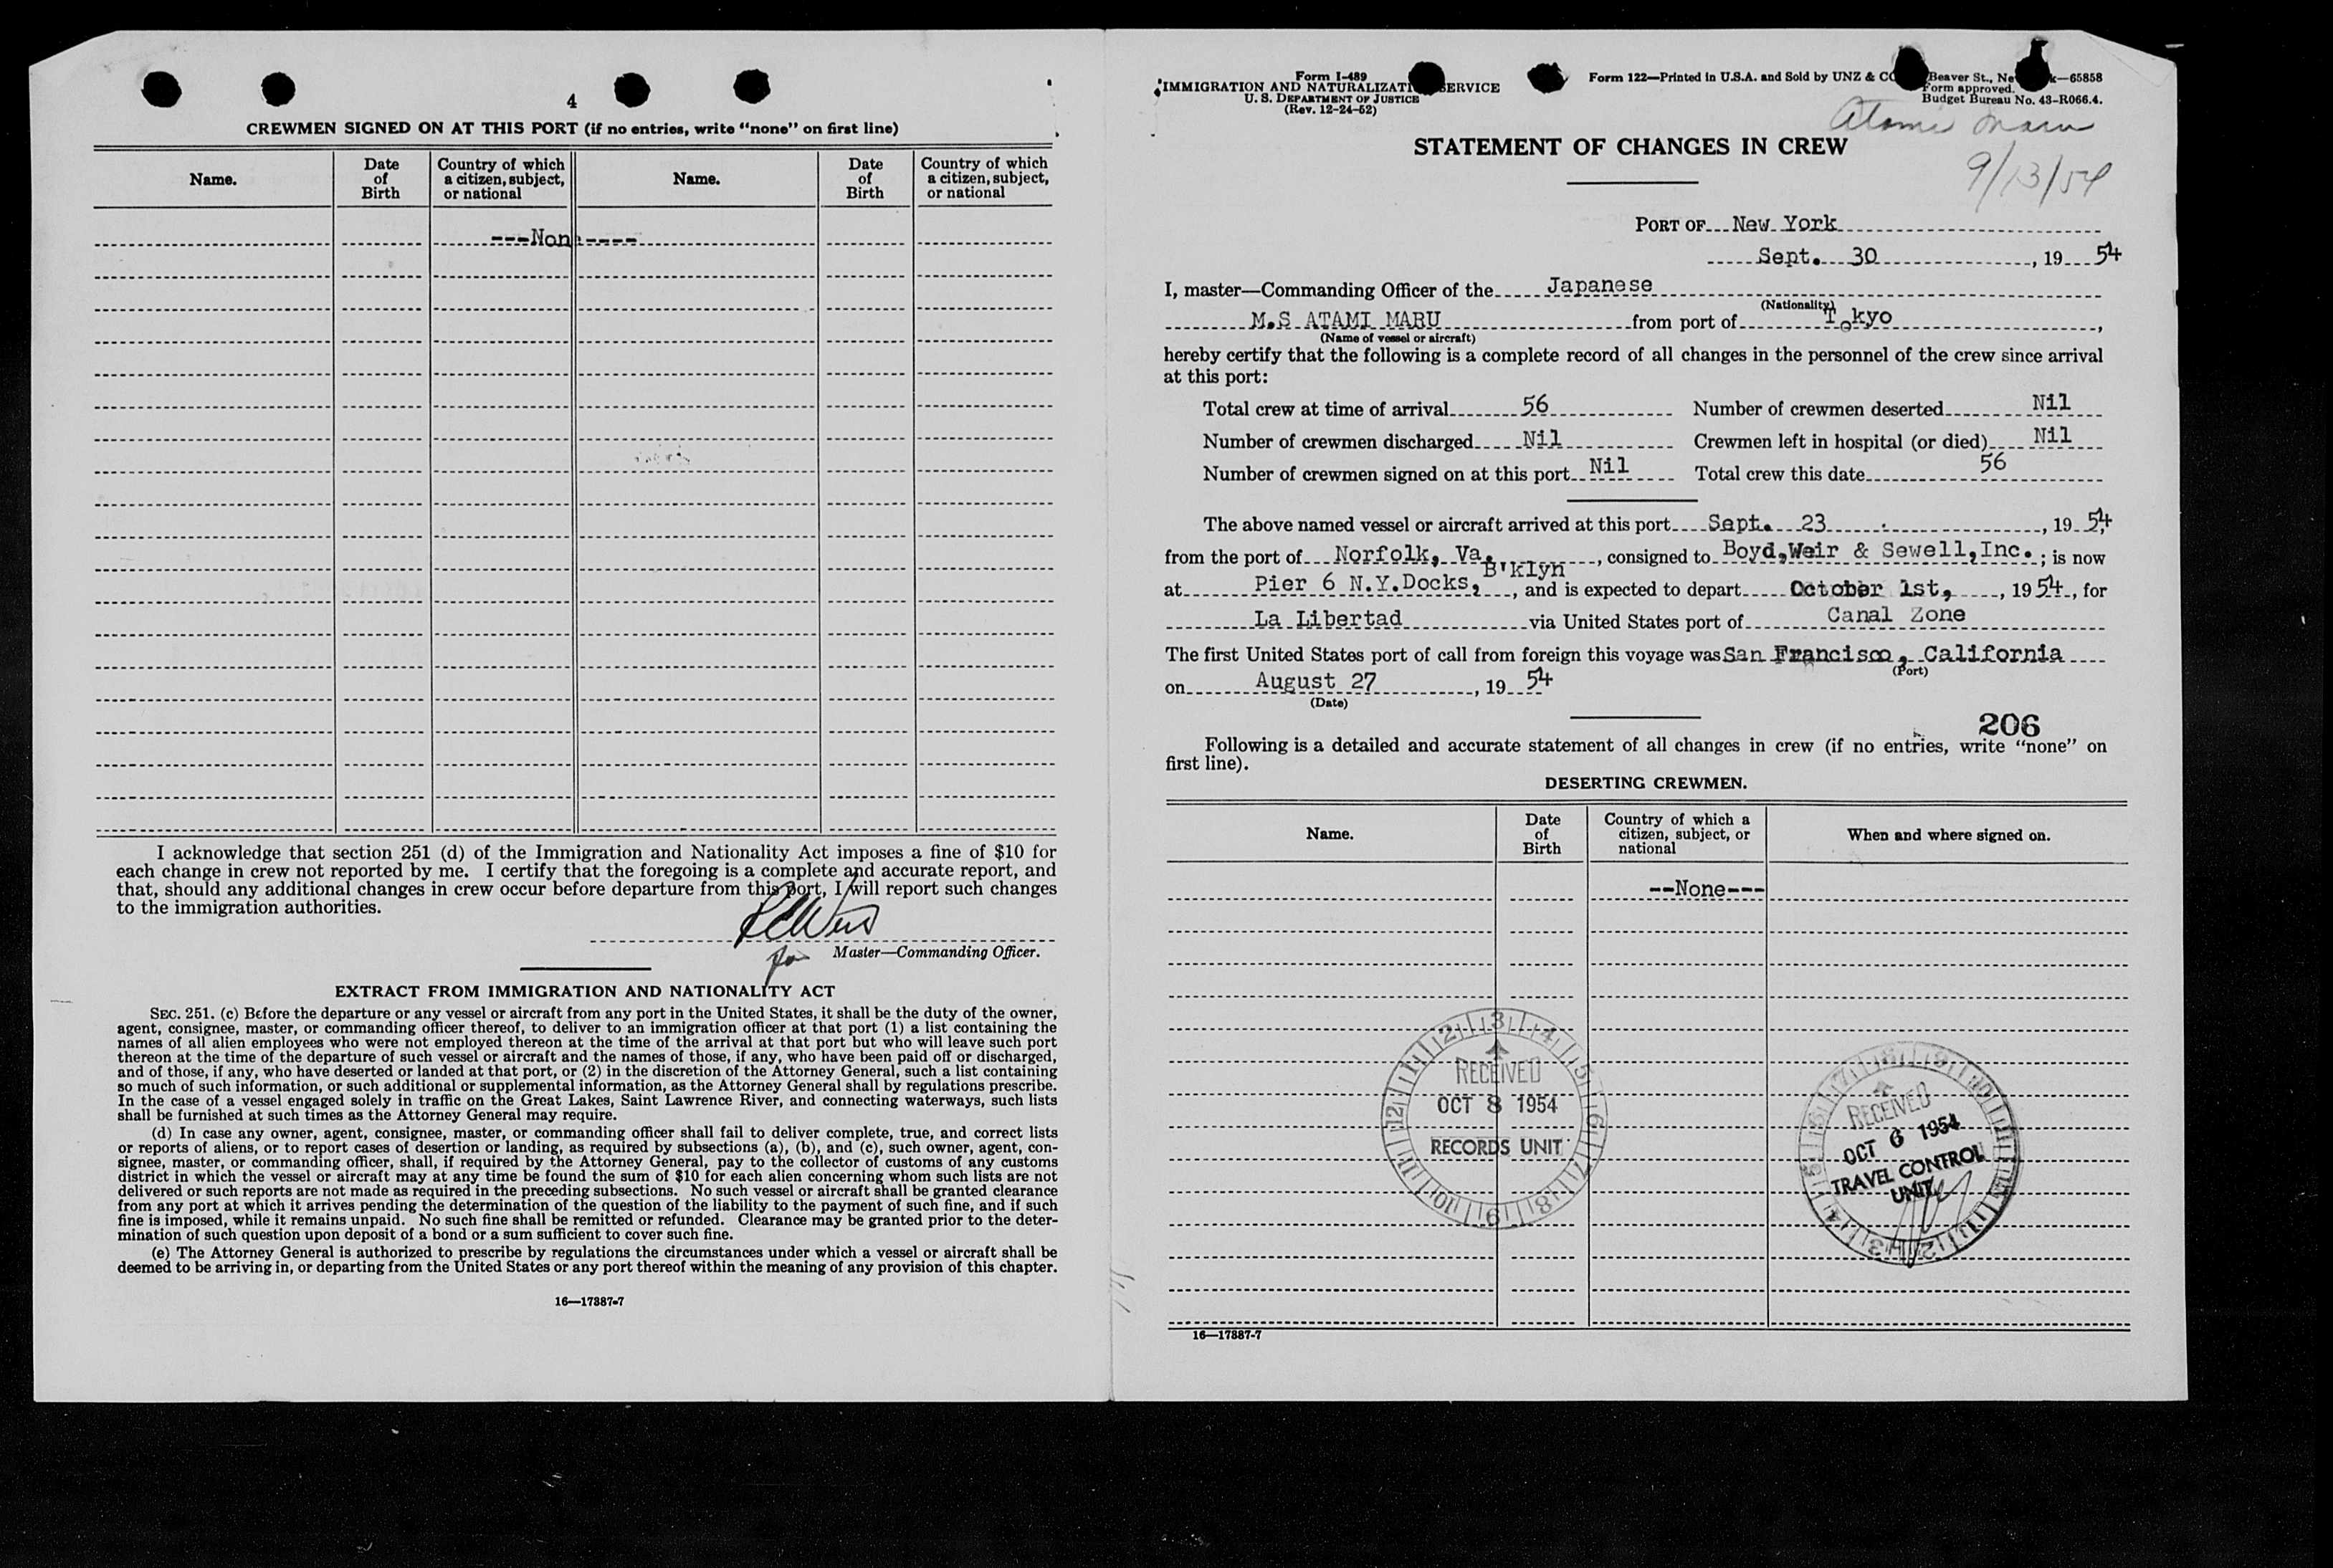 4
CREWMEN SIGNED ON AT THIS PORT (if no entries, write “none” on first line)
Name. Date of Birth Country of which a citizen, subject, or national Name. Date of Birth Country of which a citizen, subject, or national
---Non ----
I acknowledge that section 251 (d) of the Immigration and Nationality Act imposes a fine of $10 for
each change in crew not reported by me. I certify that the foregoing is a complete and accurate report, and
that, should any additional changes in crew occur before departure from this port, I will report such changes
to the immigration authorities.
for Master—Commanding Officer.
EXTRACT FROM IMMIGRATION AND NATIONALITY ACT
SEC. 251. (c) Before the departure or any vessel or aircraft from any port in the United States, it shall be the duty of the owner,
agent, consignee, master, or commanding officer thereof, to deliver to an immigration officer at that port (1) a list containing the
names of all alien employees who were not employed thereon at the time of the arrival at that port but who will leave such port
thereon at the time of the departure of such vessel or aircraft and the names of those, if any, who have been paid off or discharged,
and of those, if any, who have deserted or landed at that port, or (2) in the discretion of the Attorney General, such a list containing
so much of such information, or such additional or supplemental information, as the Attorney General shall by regulations prescribe.
In the case of a vessel engaged solely in traffic on the Great Lakes, Saint Lawrence River, and connecting waterways, such lists
shall be furnished at such times as the Attorney General may require.
(d) In case any owner, agent, consignee, master, or commanding officer shall fail to deliver complete, true, and correct lists
or reports of aliens, or to report cases of desertion or landing, as required by subsections (a), (b), and (c), such owner, agent, con-
signee, master, or commanding officer, shall, if required by the Attorney General, pay to the collector of customs of any customs
district in which the vessel or aircraft may at any time be found the sum of $10 for each alien concerning whom such lists are not
delivered or such reports are not made as required in the preceding subsections. No such vessel or aircraft shall be granted clearance
from any port at which it arrives pending the determination of the question of the liability to the payment of such fine, and if such
fine is imposed, while it remains unpaid. No such fine shall be remitted or refunded. Clearance may be granted prior to the deter-
mination of such question upon deposit of a bond or a sum sufficient to cover such fine.
(e) The Attorney General is authorized to prescribe by regulations the circumstances under which a vessel or aircraft shall be
deemed to be arriving in, or departing from the United States or any port thereof within the meaning of any provision of this chapter.
16—17887-7
Form I-489
IMMIGRATION AND NATURALIZATI SERVICE
U. S. DEPARTMENT OF JUSTICE
(Rev. 12-24-52)
Form 122—Printed in U.S.A. and Sold by UNZ & CO Beaver St., Ne k—65858
Form approved.
Budget Bureau No. 43-R066.4.
Atami Maru
9/13/54
STATEMENT OF CHANGES IN CREW
PORT OF New York
Sept. 30, 19 54
I, master—Commanding Officer of the Japanese
(Nationality)
M.S ATAMI MARU from port of Tokyo,
(Name of vessel or aircraft)
hereby certify that the following is a complete record of all changes in the personnel of the crew since arrival
at this port:
Total crew at time of arrival 56 Number of crewmen deserted Nil
Number of crewmen discharged Nil Crewmen left in hospital (or died) Nil
Number of crewmen signed on at this port Nil Total crew this date 56
The above named vessel or aircraft arrived at this port Sept. 23, 19 54
from the port of Norfolk, Va., consigned to Boyd,Weir & Sewell,Inc.; is now
at Pier 6 N.Y.Docks, B'klyn, and is expected to depart October 1st, , 19 54, for
La Libertad via United States port of Canal Zone
The first United States port of call from foreign this voyage was San Francisco, California
(Port)
on August 27, 19 54
(Date)
206
Following is a detailed and accurate statement of all changes in crew (if no entries, write “none” on
first line).
DESERTING CREWMEN.
Name. Date of Birth Country of which a citizen, subject, or national When and where signed on.
--None---
RECEIVED
OCT 8 1954
RECORDS UNIT
RECEIVED
OCT 6 1954
TRAVEL CONTROL
UNIT
16—17887-7